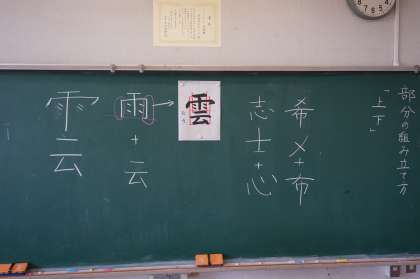 部分の組み立て方
「上下」
希 メ+布
志 士+心
雲
雨+云
雲